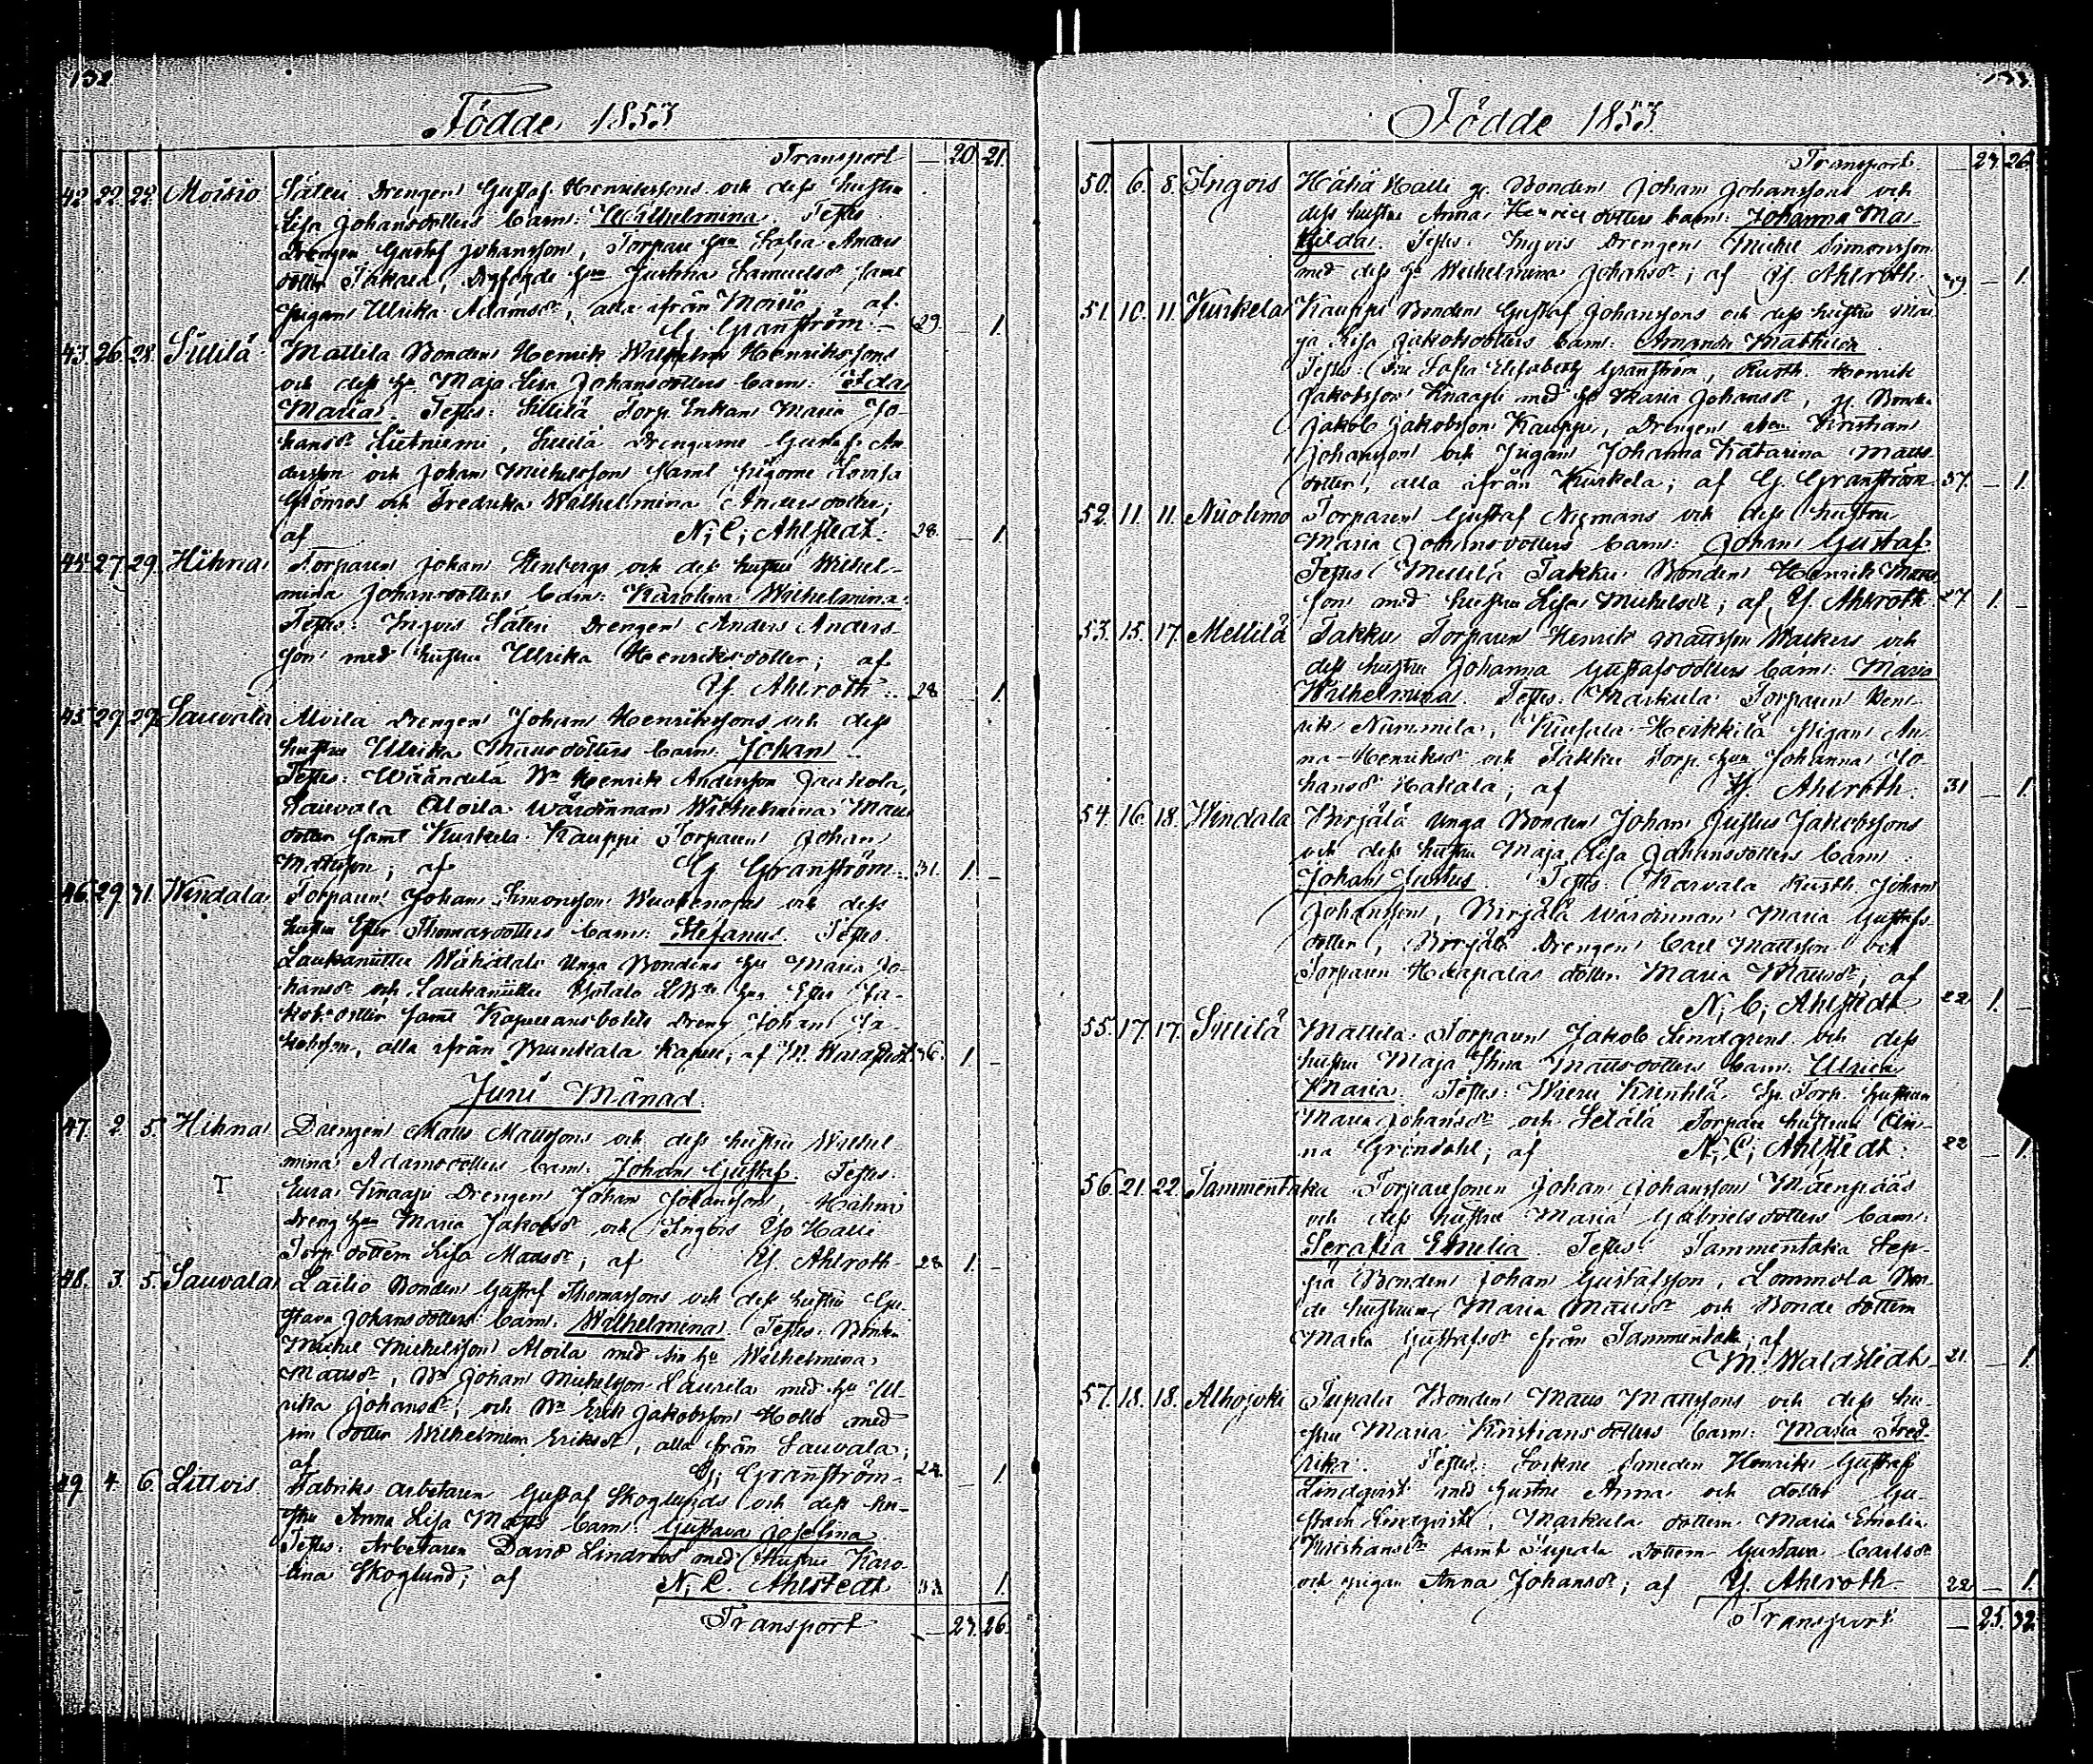 132
Födde 1853
Transport — 20 21
42. 22. 22. Moisio Säteri Drengen Gustaf Henrikssons och dess hustru
Lisa Johansdotters barn: Wilhelmina. Testes
Drengen Gustaf Johansson, Torpare hun Sofia Anders
dotter Takala, hun Justina Samuelsdr samt
pigan Ulrika Adamsdr, alla ifrån Moisio; af
G. Granström. 29. — 1.
43. 26. 28. Sillilä Mattila Bonden Henrik Wilhelm Henrikssons
och dess hu Maja Lisa Johansdotters barn: Ida
Maria. Testes: Sillilä Torp. Enkan Maria Jo-
hansdr Lietniemi, Sillilä Drengarne Gustaf An
dersson och Johan Michelsson samt pigorne Lovisa
Grönros och Fredrika Wilhelmina Andersdotter;
af N. C. Ahlstedt. 28. — 1
44. 27. 29. Hihna Torparen Johan Stenbergs och dess hustru Wilhel-
mina Johansdotters barn: Karolina Wilhelmina.
Testes: Ingois Säteri Drengen Anders Anders-
son med hustru Ulrika Henriksdotter; af
Y. Ahlroth. 28. 1.
45. 29. 29. Sauvala Aloila Drengen Johan Henrikssons och dess
hustru Ulrika Mattsdotters barn: Johan.
Testes: Wäändilä Bn Henrik Andersson Jaakola,
Sauvala Aloila wärdinnan Wilhelmina Matts
dotter samt Kurkela Kauppi Torparen Johan
Mattsson; af G. Granström. 31. 1. —
46. 29. 31. Wendala Torparen Johan Simonsson och dess
hustru Ester Thomasdotters barn: Stefanus. Testes
Laukaniitti Unga Bondens hu Maria Jo-
hansdr och Laukaniitti Yotalo hu Ester Ja-
kobsdotter samt Kapellansbolets Dreng Johan Ja-
kobsson, alla ifrån Brunkala Kapell; af M. Waldstedt. 36. 1. —
Juni Månad.
47. 2. 5. Hihna Drengen Matts Mattssons och dess hustru Wilhel-
mina Adamsdotters barn: Johan Gustaf. Testes:
Eura Knaapi Drengen Johan Johansson, Hahni
Dreng hun Maria Jakobsdr och Ingois Yo Halli
Torp. dottern Lisa Mattsdr; af Y. Ahlroth. 28. 1. —
48. 3. 5. Sauvala Lailio Bonden Gustaf Thomassons och dess hustru Gu-
stava Johansdotters barn: Wilhelmina. Testes: Bonden
Michel Michelsson Aloila med sin hu Wilhelmina
Mattsdr, Bn Johan Michelsson Laurila med hu Ul-
rika Johansdr, och Bn Erik Jakobsson Hollo med
sin dotter Wilhelmina Eriksdr, alla från Sauvala;
af G. Granström. 24. — 1
49. 4. 6. Littois Fabriks arbetaren Gustaf Skoglunds och dess hu-
stru Anna Lisa Matts barn: Gustava Joselina.
Testes: Arbetaren David Lindroos med hustru Karo-
lina Skoglund; af N. C. Ahlstedt 33. 1.
Transport — 23. 26.
133.
Födde 1853.
Transport — 23. 26.
50. 6. 8. Ingois Hähä Halli gr. Bonden Johan Johanssons och
dess hustru Anna Henrics dotters barn: Johanna Ma-
thilda. Testes: Ingois Drengen Michel Simonsson
med dess hu Wilhelmina Johansdr; af Y. Ahlroth. 39. — 1.
51. 10. 11. Kurkela Kauppi Bonden Gustaf Johanssons och dess hustru Ma-
ja Lisa Jakobsdotters barn: Amanda Mathilda.
Testes: Fru Sofia Elisabeth Granström, Rusth. Henrik
Jakobsson Knaapi med hu Maria Johansdr, gr Bonden
Jakob Jakobsson Kauppi, Drengen Kristian
Johansson och pigan Johanna Katarina Matts-
dotter, alla ifrån Kurkela; af G. Granström. 37. — 1.
52. 11. 11. Nuolimo Torparen Gustaf Nymans och dess hustru
Maria Johansdotters barn: Johan Gustaf.
Testes Mellilä Takku Bonden Henrik Matts
son med hustru Lisa Michelsdr; af Y. Ahlroth. 27. 1. —
53. 15. 17. Mellilä Takku Torparen Henrik Mattsson och
dess hustru Johanna Gustafsdotters barn: Maria
Wilhelmina. Testes: Markula Torparen Hen-
rik Nummila, Heikkilä pigan An-
na Henriksdr och Takku Torp. hun Johanna Jo-
hansdr Hakala; af Y. Ahlroth. 31 — 1
54. 16. 18. Wendala Pirjälä unga Bonden Johan Justus Jakobssons
och dess hustru Maja Lisa Johansdotters barn:
Johan Julius. Testes: Karvala Rusth. Johan
Johansson, Pirjälä wärdinnan Maria Gustafs-
dotter, Pirjälä Drengen Carl Mattsson och
Torparen Haapalas dotter Maria Mattsdr; af
N. C. Ahlstedt 22 1. —
55. 17. 17. Sillilä Mattila Torparen Jakob Lindgrens och dess
hustru Maja Stina Mattsdotters barn: Ulrica
Maria. Testes: Torp. hustrun
Maria Johansdr och Setälä Torpare hustrun An-
na Gröndahl; af N. C. Ahlstedt. 22 — 1.
56. 21. 22. Tammentaka Torparesonen Johan Johanssons Mäenpääs
och dess hustru Maria Gabrielsdotters barn:
Serafia Emelia Testes: Tammentaka Sep-
pä Bonden Johan Gustafsson, Lommola Bon-
de hustrun Maria Mattsdr och Bonde dottern
Maria Gustafsdr från Tammentaka; af
M. Waldstedt. 21. — 1.
57. 18. 18. Alhojoki Tupala Bonden Matts Mattssons och dess hu-
stru Maria Kristiansdotters barn: Maria Fred-
rika. Testes: Sockne smeden Henrik Gustaf
Lindqvist med hustru Anna och dotter Gu-
stava Lindqvist, Markula dottern Maria Emelia
Kristiansdr samt Tupala dottern Gustava Carlsdr
och pigan Anna Johansdr; af Y. Ahlroth. 22 — 1.
Transport — 25. 32.